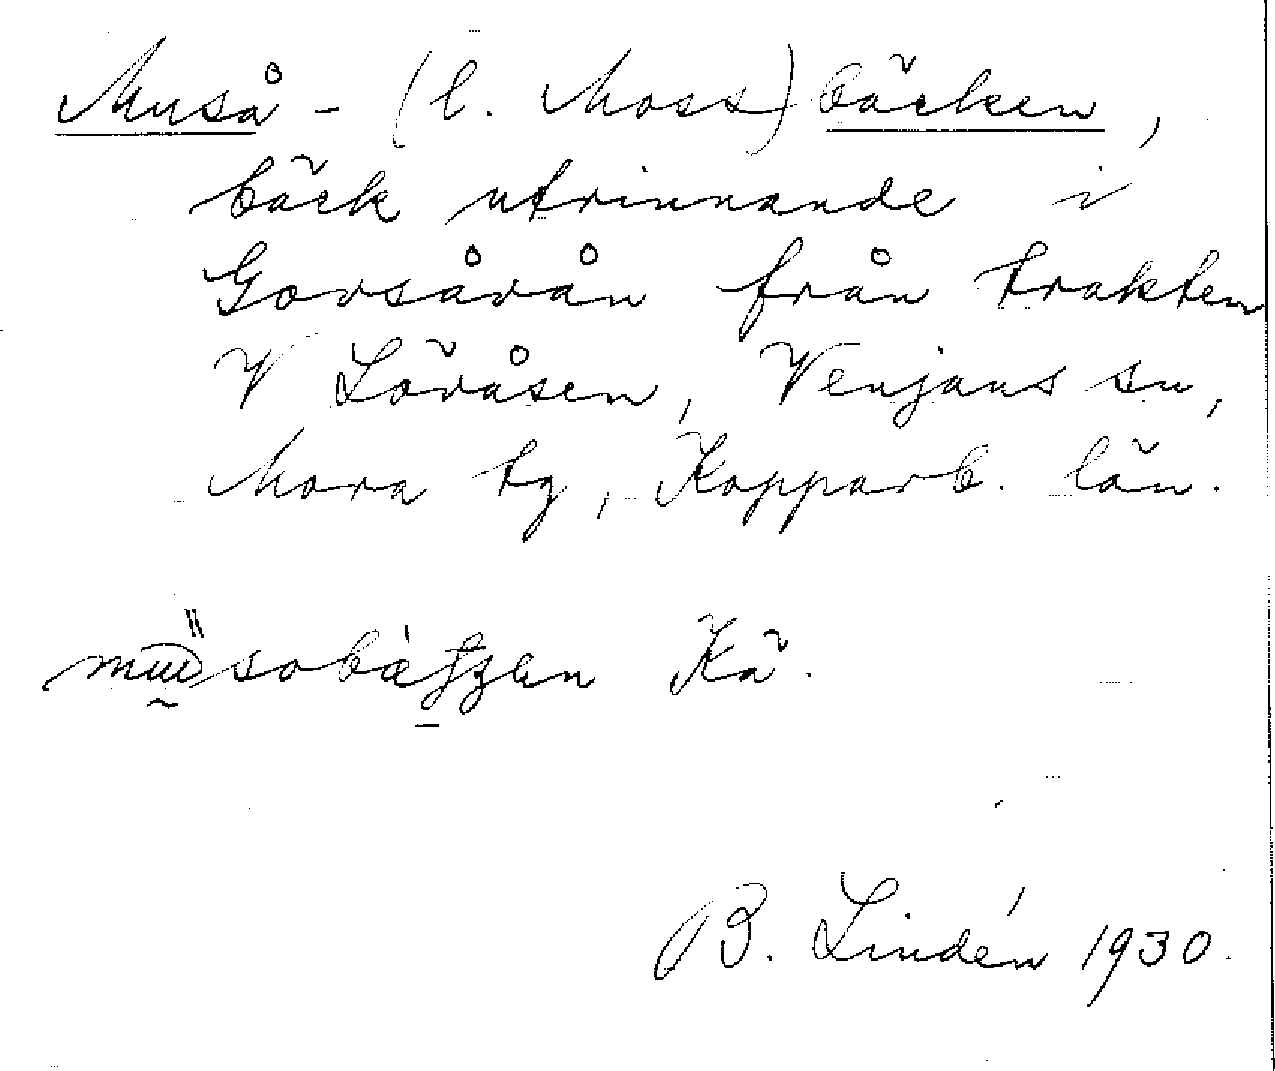 Muså - (l. Moss) bäcken,
bäck utrinnande i
Govsåvån från trakten
V Lövåsen, Venjans sn,
Mora tg, Kopparb. län.
Kä.
B. Lindén 1930.